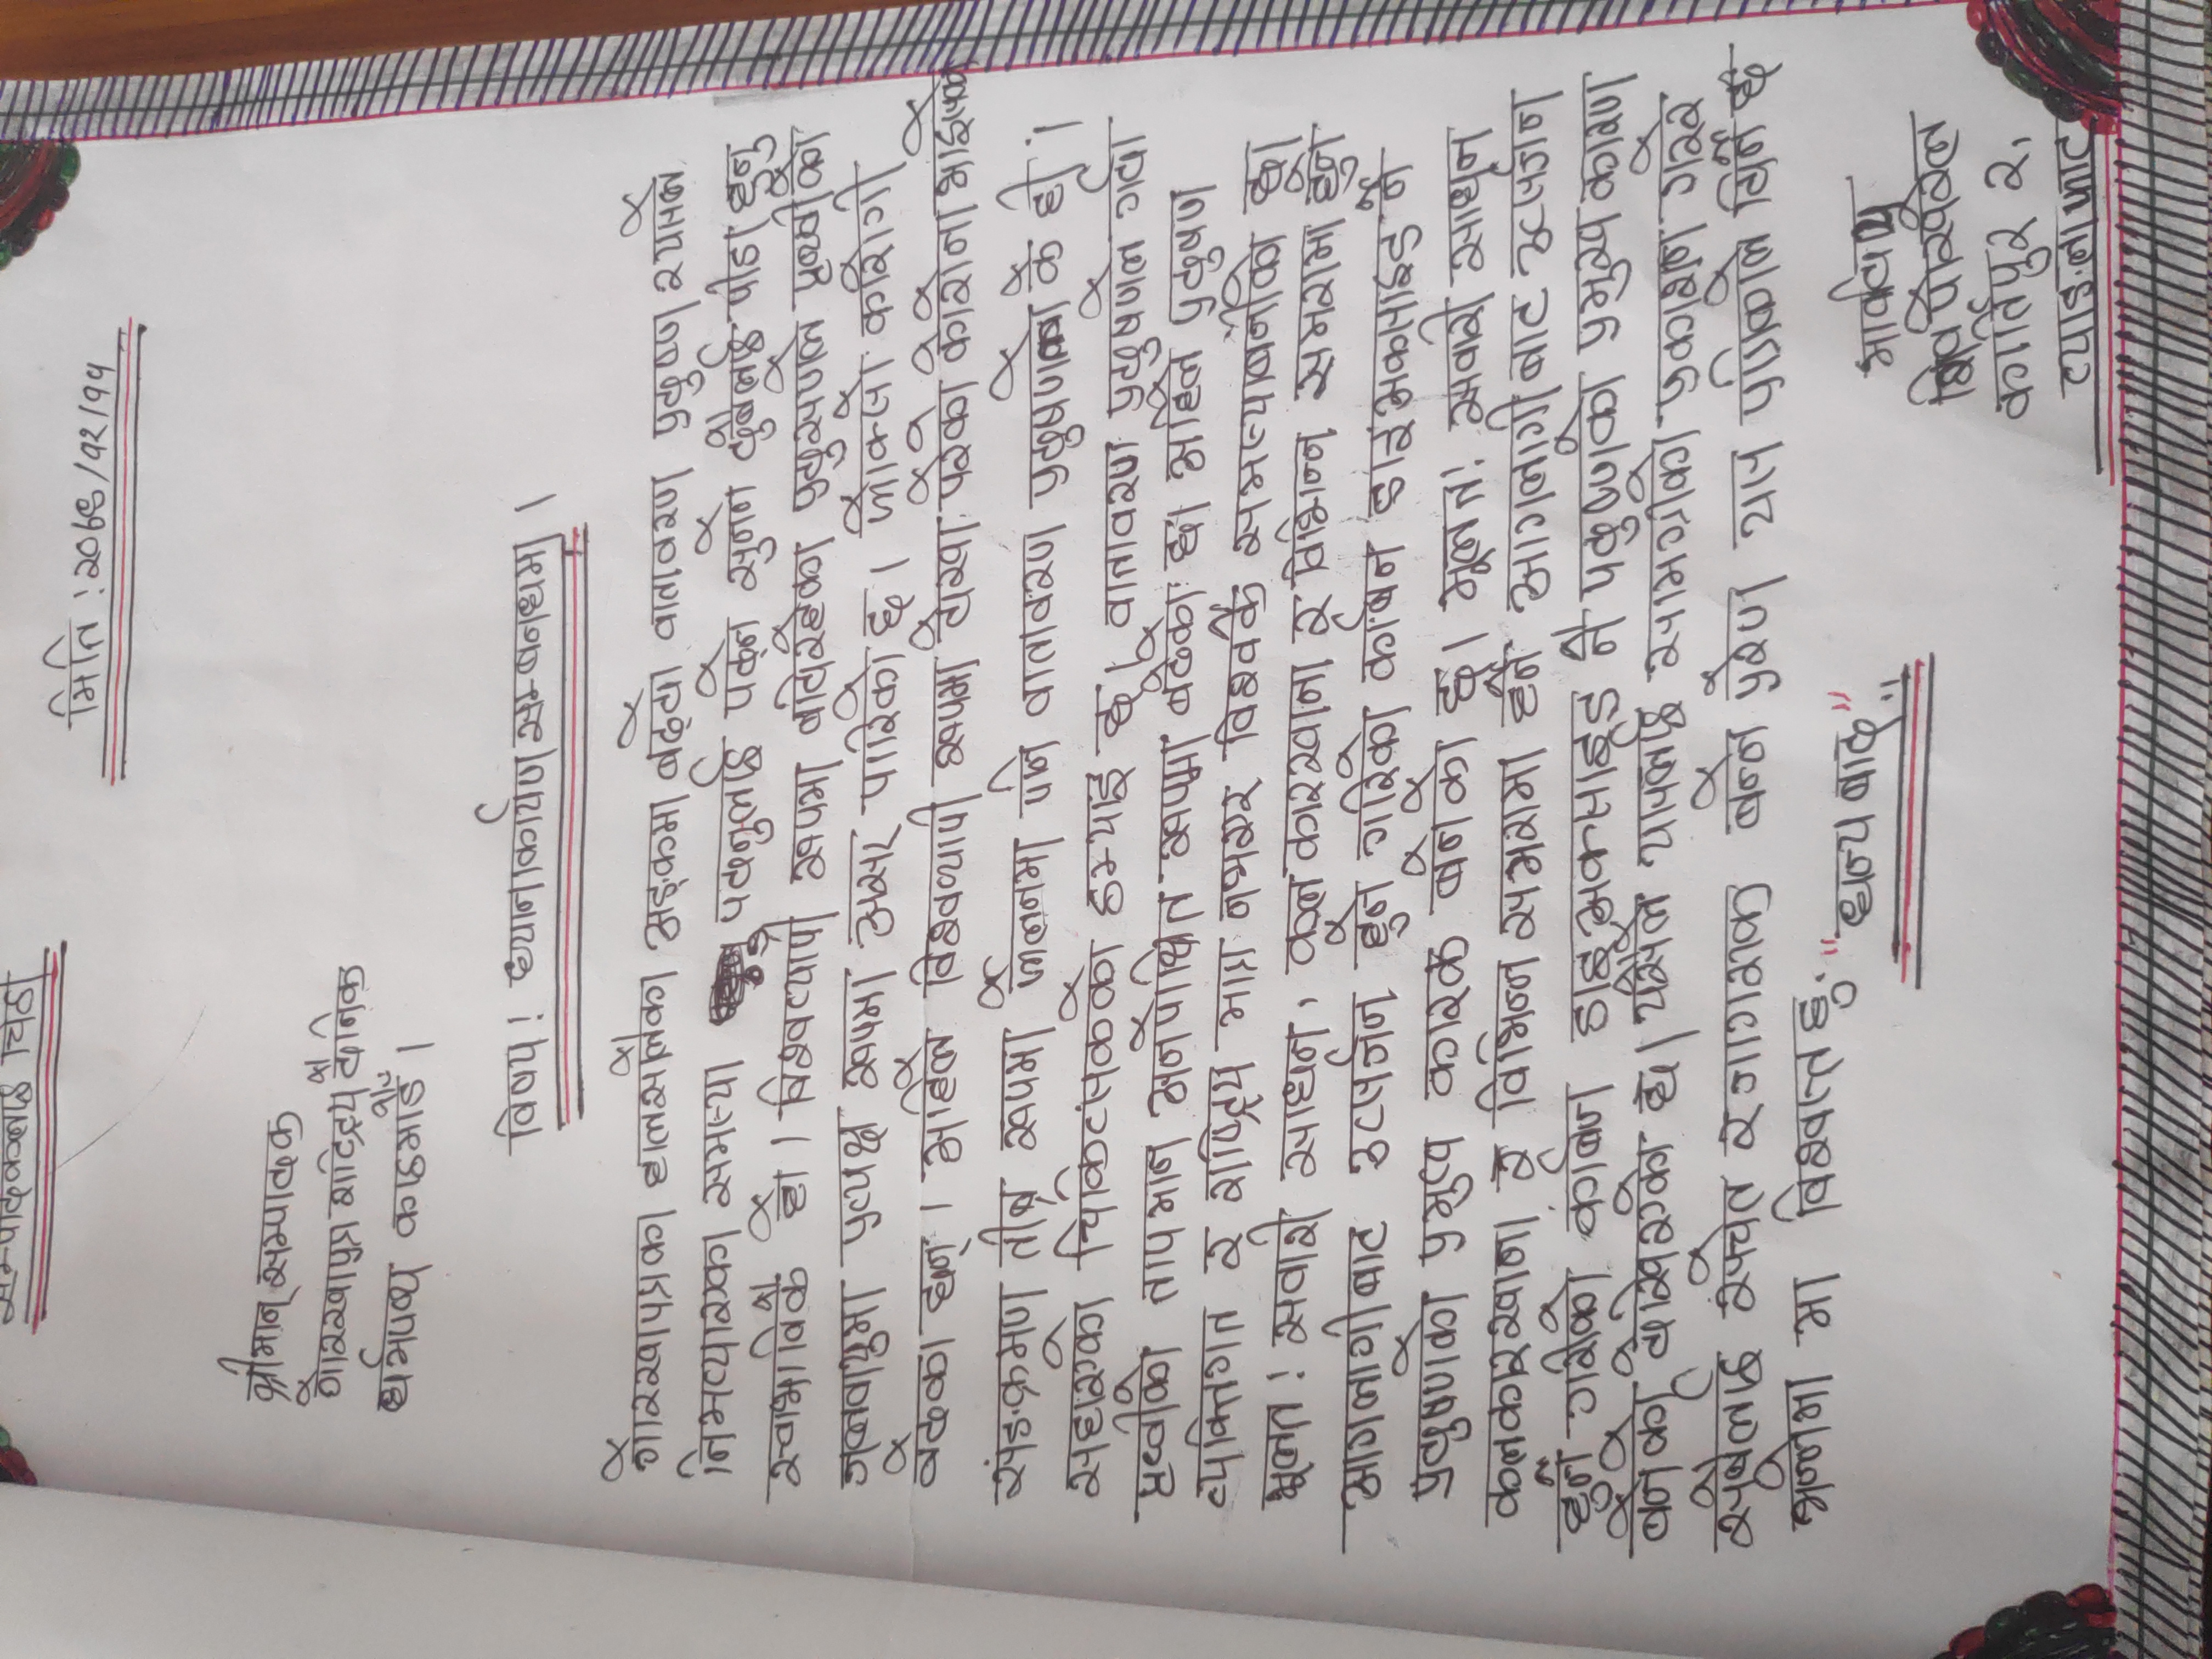 सम्पादकलाई चिठी
मिति ! २०७९/१२/१५
श्रीमान् सम्पादक
गोरखापत्र राष्ट्रिय दैनिक
धर्मपथ काठमाडौँ ।
विषय ! ध्यानाकार्यण सम्बनधमा ।
गोरखापत्रका हालसालैका अङ्कमा बढ्दो वातावरण प्रदुष्ण र यसले
निमत्याएका समस्या पढनुलाई पढ्ने सुनने दुबैलाई पीडा हुनु
स्वाभाविकै हो । विश्वव्यापी रूपमा बढिरहेका प्रदुसणले पृथ्वीको
जलवायुमा प्रत्यक्ष रूपमा असर पारिको छ । फोक्सो करोगी
बढेका छन् । अहिले विश्वव्यापी रूपमा देखा परेको कोरोना भाइसको
संङक्रमण तीब्र रूपमा फैलनमा पनि वातावरण प्रदुषणको कै हो ।
सहाएको चिकित्सकको ठम्याइ छ । वातावरण प्रदुषणले गर्दा
पृथ्वीको तापमान अनपेक्षित रूपमा बढेको छ। अहिले प्रदुषण
व्यक्तिगत र राष्ट्रिय मात्र नभएर विश्वकै समस्याबनेको छ।
मूलत ! सवारी साधन, कल कारखाना र विभिन्न समरामा हुने
आगलागीबाट उत्सर्जन हुने गरिको कार्बन डाइअकसाइड नै
प्रदुषणको प्रमुख कारक बनेको छ । मूलत ! सवारी साधन
कलकारखाना र विभिन्न समरामा हुने आगलागी बाट उत्सर्जन
हुने गरीको कार्बन डाइअक्साइड नै पदुष्णको प्रमुख कारण
बनेको देखिएको छ । यसैले यासलाई सामग्रीको प्रकाशन गरेर
सबैलाई सचेत र जागरूक बन्ने प्रेरण यस पत्रिकाले दिने छ
भन्नेमा मा विश्वस्त छु.
"धन्य बाद"
शिव पोखरेल
कीर्तिपुर २,
त्याङ्लाफाट